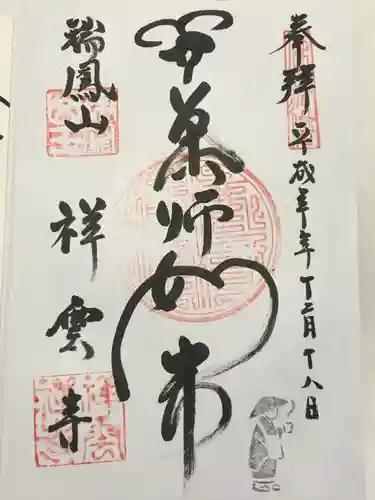 奉拝 平成年年十二月十八日
薬師如来
瑞鳳山
祥雲寺